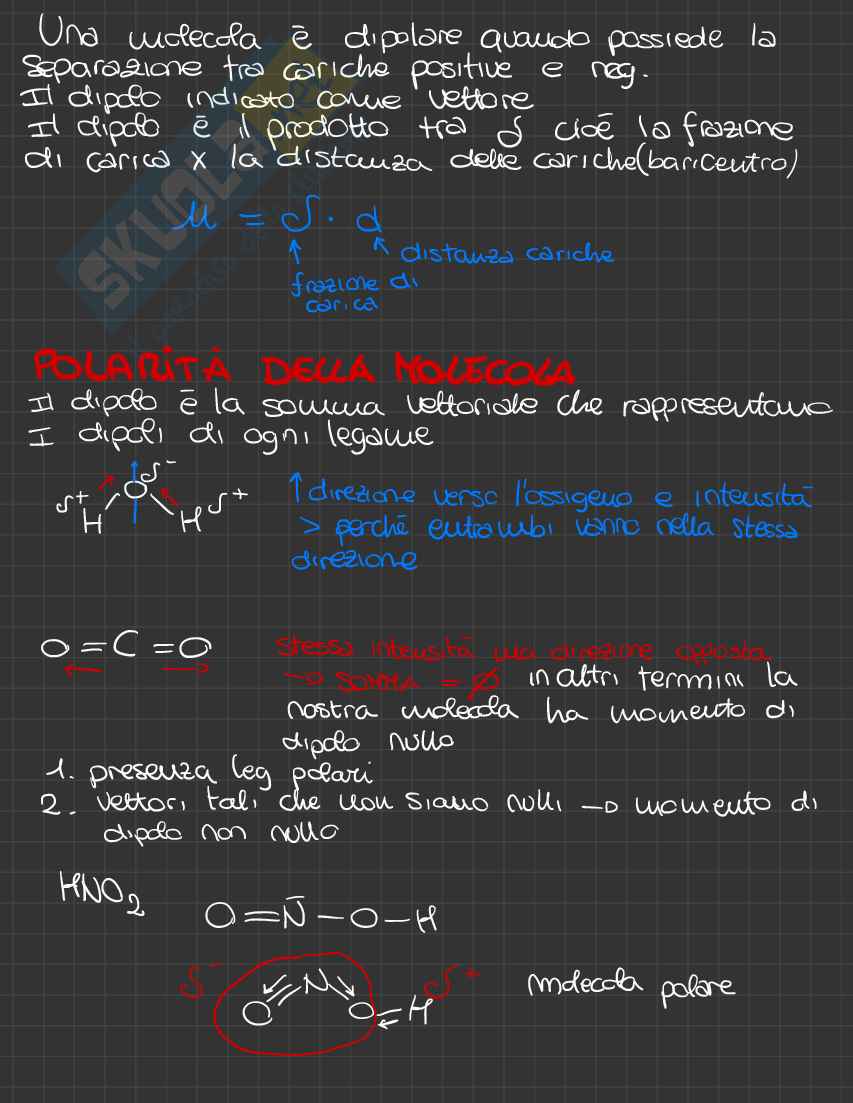 Una molecola è dipolare quando possiede la
Separazione tra cariche positive e neg.
Il dipolo indicato come vettore
Il dipolo è il prodotto tra δ cioè la frazione
di carica x la distanza delle cariche (baricentro)
SKUOLA.net
μ = δ · d
↑ ↖ distanza cariche
frazione di
carica
POLARITÀ DELLA MOLECOLA
Il dipolo è la somma vettoriale che rappresentano
I dipoli di ogni legame
δ⁻
δ⁺ O δ⁺
H H
↑ direzione verso l'ossigeno e intensità
> perché entrambi vanno nella stessa
direzione
O = C = O
stessa intensità ma direzione opposta
→ SOMMA = ∅ in altri termini la
nostra molecola ha momento di
dipolo nullo
1. presenza leg polari
2. vettori tali che non siano nulli → momento di
dipolo non nullo
HNO₂
O=N̄-O-H
δ⁻ N δ⁺
O O H
molecola polare